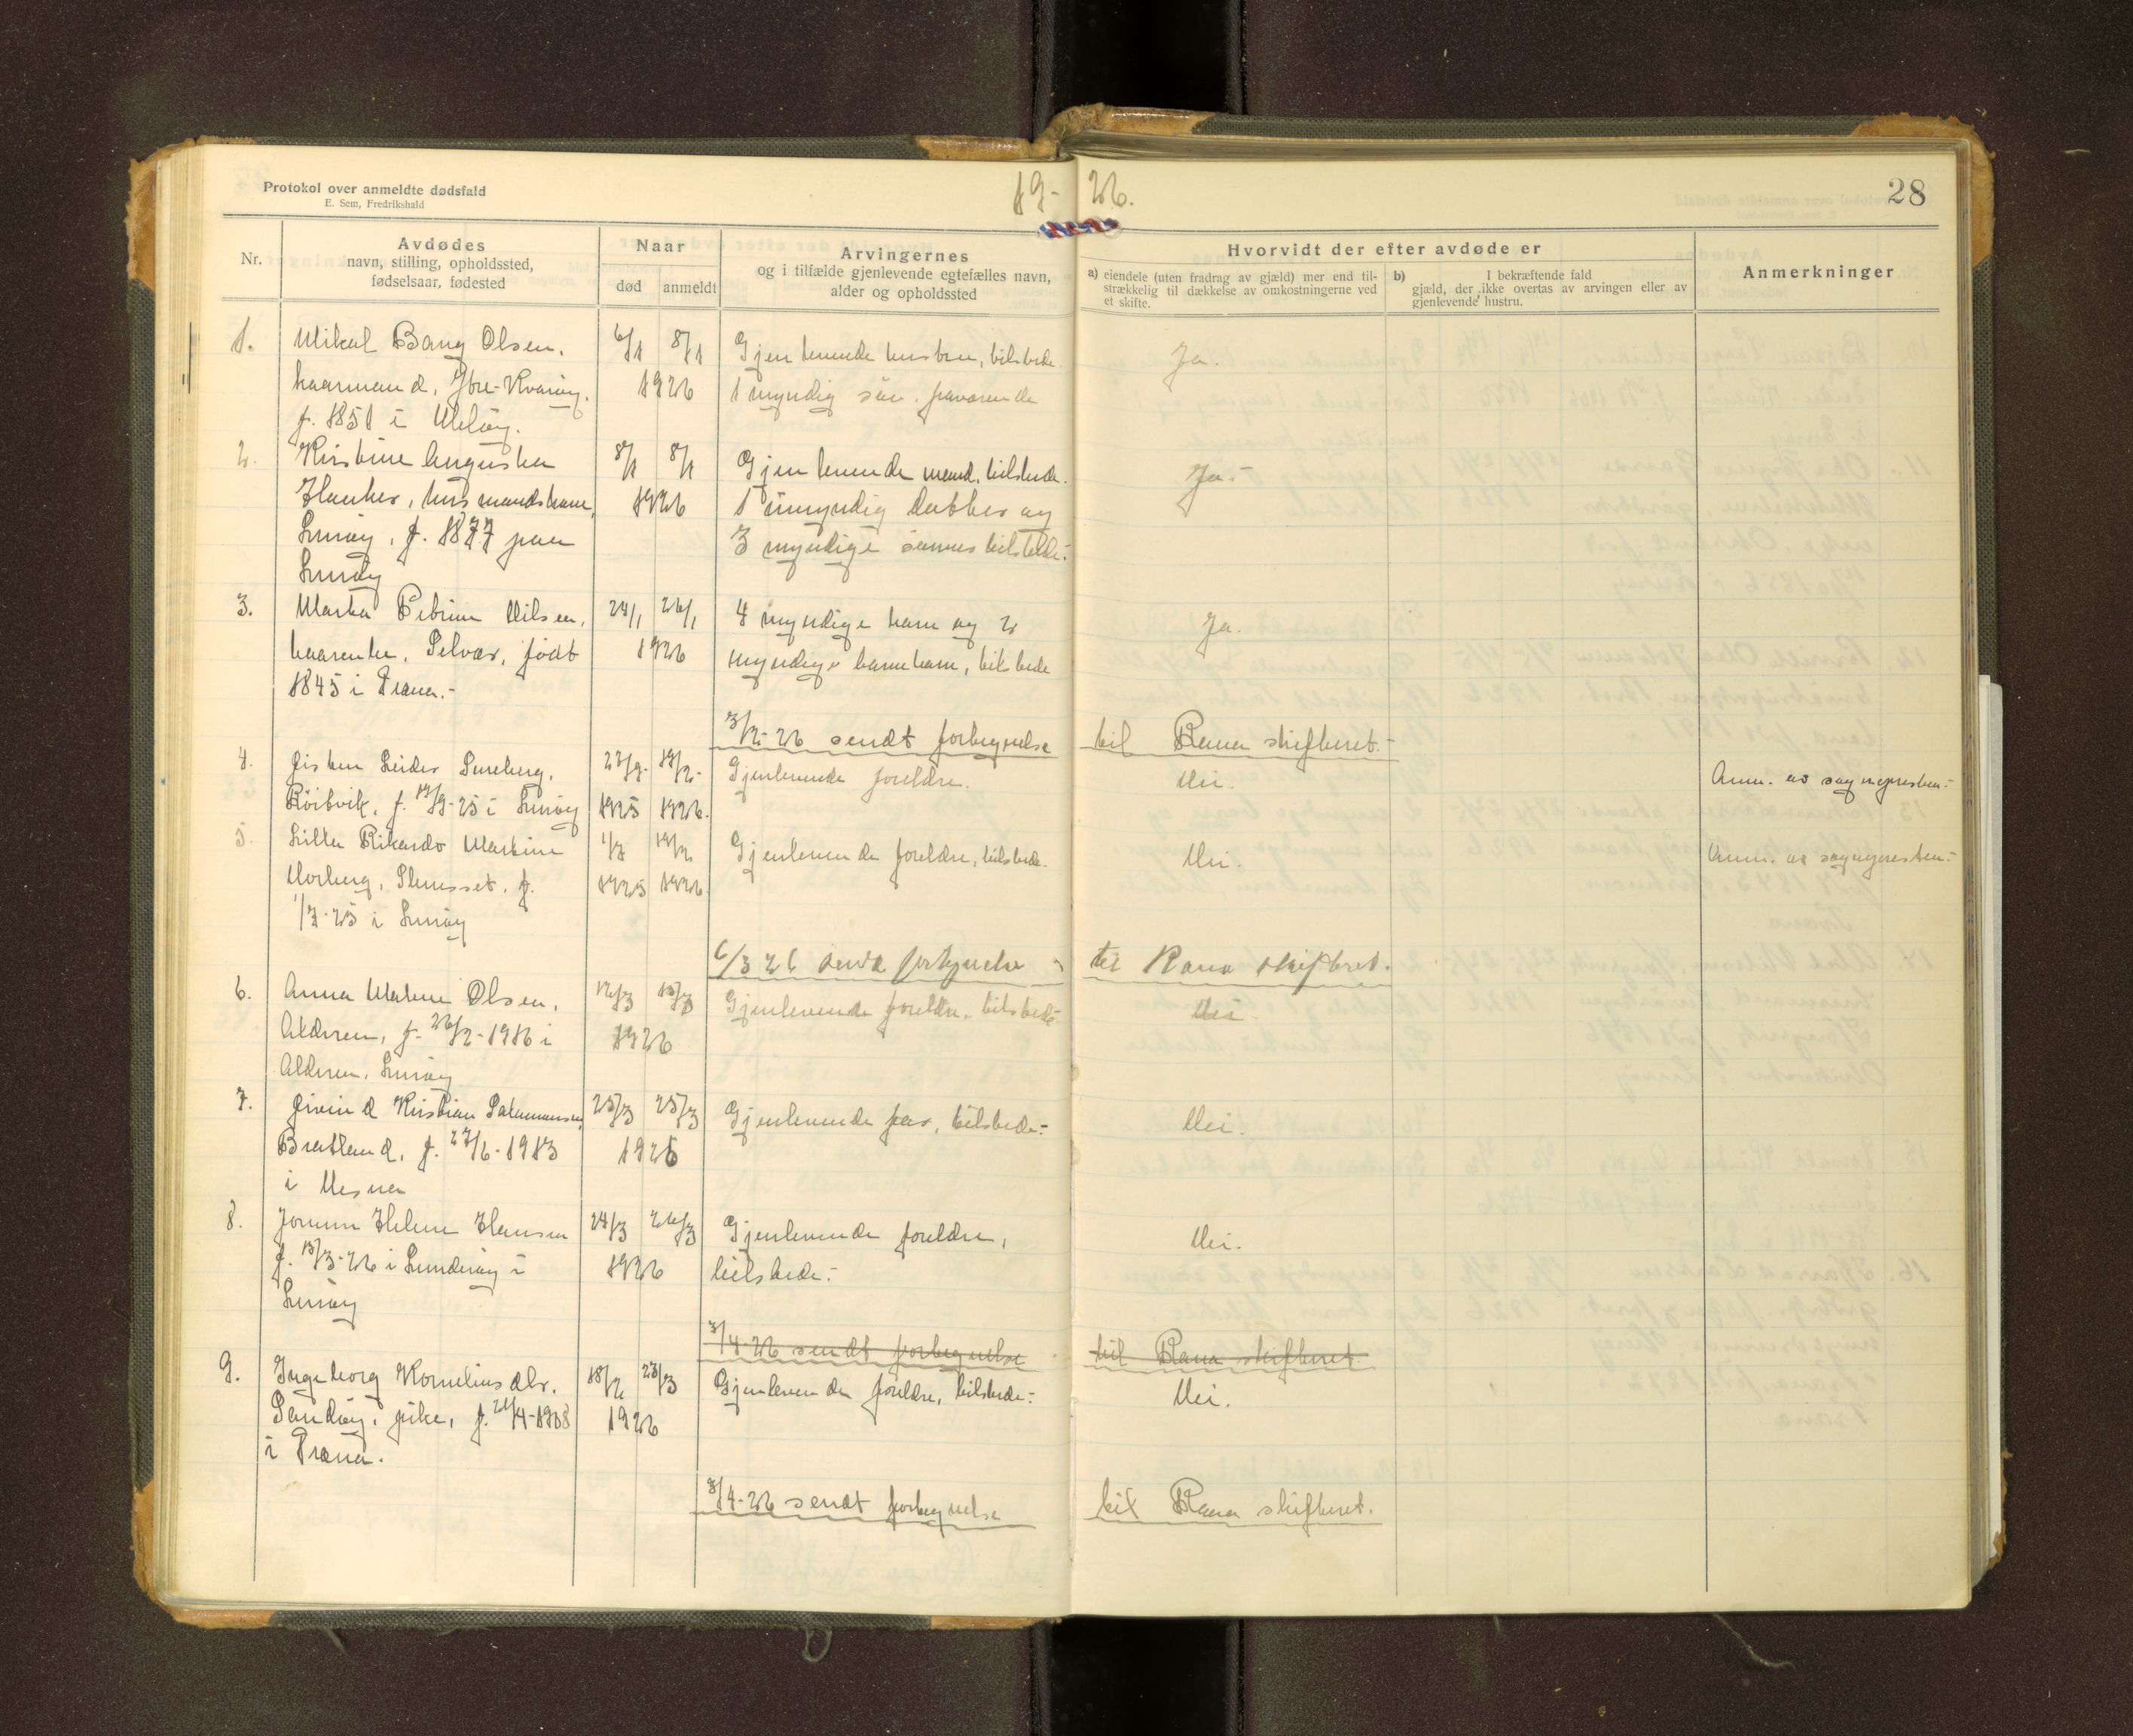 Protokol over anmeldte dødsfald
E. Sem, Fredrikshald
19-26.
28
Nr.
Avdødes
navn, stilling, opholdssted,
fødselsaar, fødested
Naar
død
anmeldt
Arvingernes
og i tilfælde gjenlevende egtefælles navn,
alder og opholdssted
Hvorvidt der efter avdøde er
a) eiendele (uten fradrag av gjæld) mer end til-
strækkelig til dækkelse av omkostningerne ved
et skifte.
b) I bekræftende fald
gjæld, der ikke overtas av arvingen eller av
gjenlevende hustru.
Anmerkninger
1. Mikal Bang Olsen, 6/1 8/1 Gjenlevende hustru, tilstede. Ja.
kaarmand, Ytre-Kvarøy, 1926 1 myndig søn, fraværende
f. 1851 i Meløy.
2. Kristine Augusta 8/1 8/1 Gjenlevende mand, tilstede. Ja.-
husmandskone, 1926 1 umyndig datter og
Lurøy, f. 1877 paa 3 myndige sønner tilstede.-
Lurøy
3. Marta Petrine Nilsen, 24/1 26/1 4 myndige barn og 2 Ja.
kaarenke, Selvær, født 1926 myndige barnebarn, tilstede
1845 i Træna.-
3/2-26 sendt fortegnelse til Rana skifteret.-
4. 22/9- 19/2- Gjenlevende foreldre. Nei. Anm. av sognepresten.-
f. 19/9-25 i Lurøy 1925 1926.
5. Lilla Rikarda Martine 1/7 19/2 Gjenlevende foreldre, tilstede. Nei. Anm. av sognepresten.-
Norberg, f. 1925 1926.
1/7-25 i Lurøy
6/3 26 sendt fortegnelse til Rana skifteret.
6. Anna Malene Olsen, 12/3 13/3 Gjenlevende foreldre, tilstede Nei.
Alderen, f. 26/2-1916 i 1926
Alderen, Lurøy
7. Eivind Kristian Salamonsen, 25/3 25/3 Gjenlevende far, tilstede.- Nei.
Bratland, f. 27/6-1913 1926
i Nesna
8. Jorunn Helene Hansen 24/3 26/3 Gjenlevende foreldre, Nei.
f. 13/3-26 i i 1926 tilstede.-
Lurøy
3/4-26 sendt fortegnelse til Rana skifteret.
9. Ingeborg Korneliusdtr. 18/2 23/3 Gjenlevende foreldre, tilstede.- Nei.
Sandøy, pike, f. 21/4-1908 1926
i Træna.
3/4-26 sendt fortegnelse til Rana skifteret.